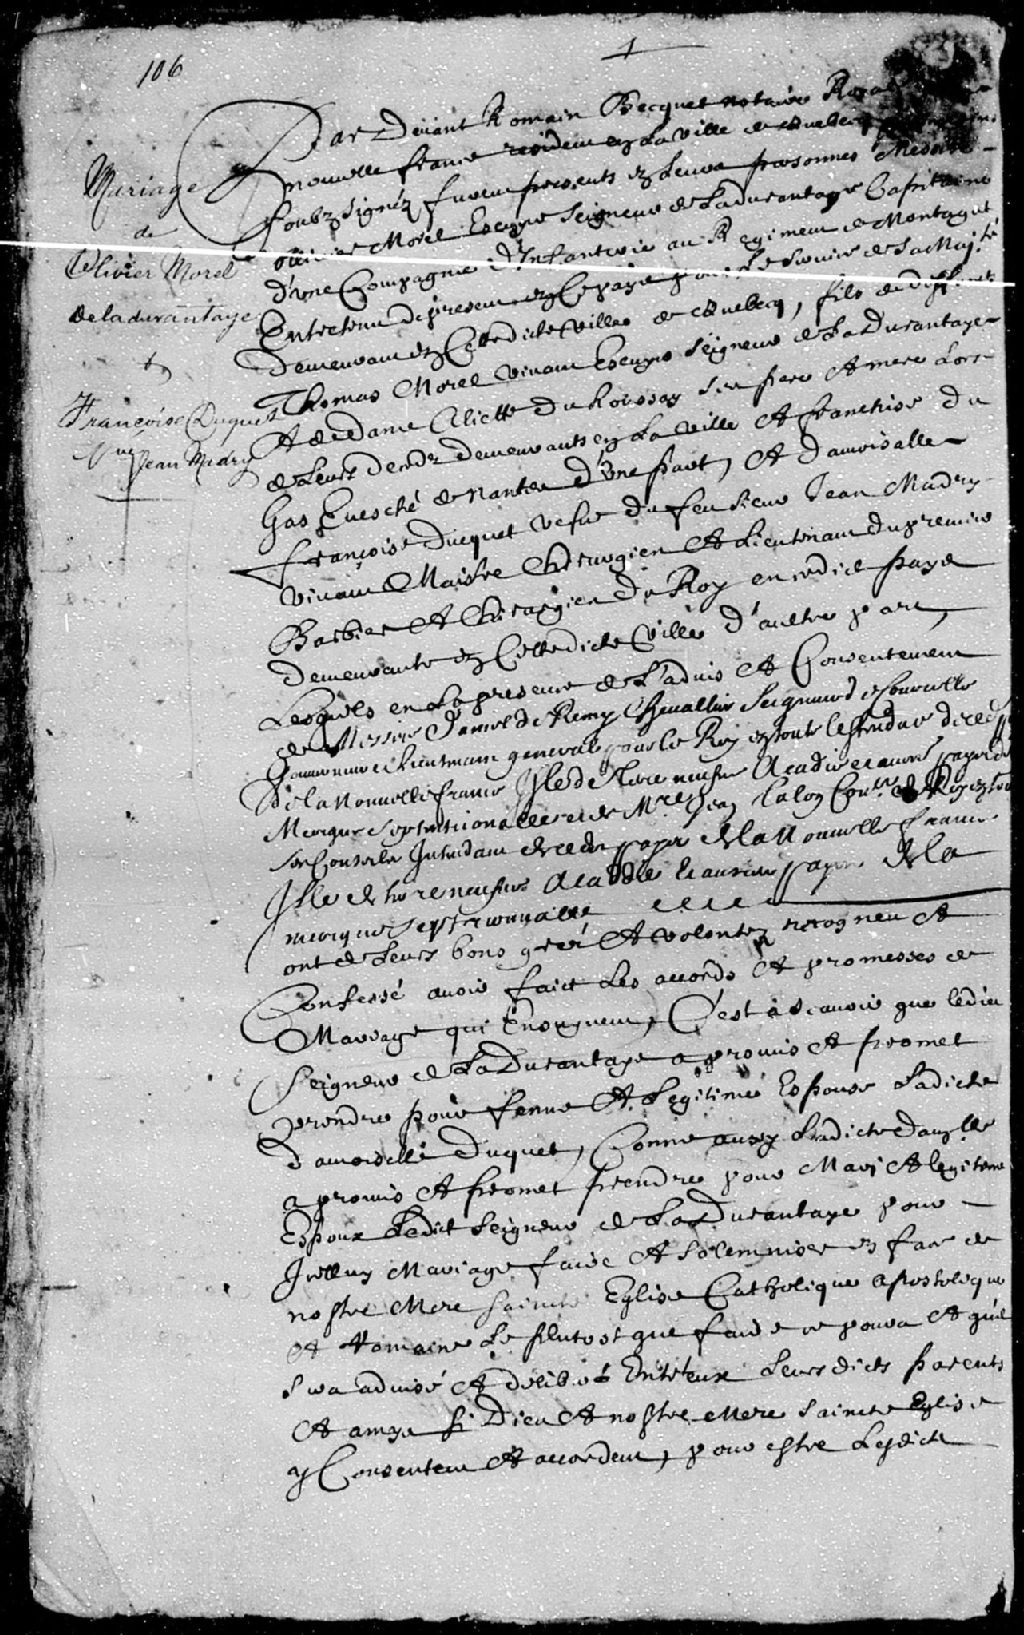 106
Mariage
de
Olivier Morel
de la durantaye
&
Françoise Duquet
Vve Jean Madry
Par Devant Romain Becquet notaire Royal
nouvelle france resident en La Ville de Quebecq
soubz signéz furent presents en Leurs personnes Messire
ollivier Morel Escuyer Seigneur de Ladurantaye Capitaine
d'une Compagnie d'Infanterie au Regiment de
Entretenu de present en Ce pays pour Le Service de Sa Majté
demeurant en Cette dicte Ville de Quebecq, fils de deffunct
Thomas Morel vivant Escuyer Seigneur de La Durantaye
Et de Dame Aliette du Houssay Ses pere Et mere Lors
de Leurs deceds demeurants en La Ville Et franchise du
Gas Evesché de Nantes d'Une part, Et damoisalle
françoise Ducquet vefve du feu Sieur Jean Madry
vivant Maistre Chirurgien Et Lieutenant du premier
Barbier Et Chirurgien du Roy en cedict pays
demeurante en Cette dicte Ville d'aultre part,
Lesquels en La presence de L'advis Et Consentement
de Messire Daniel de Remy Chevallier Seigneur de Courcelle
Gouverneur Lieutenant general pour le Roy en toute l'estendue
De la Nouvelle france Isle de Terre neufve Acadie et autres pays de
Merique Septentrionalle et de Mre Jean Talon Conser du Roy en tous
ses Conseils Intendant de de la Nouvelle france
Isle de terre neufve Acaddie Et autres pays de la
merique septentrionnalle
ont de Leurs bons gréz Et volontez recogneu Et
Confessé avoir faict Les accords Et promesses de
Mariage qui Ensuyvent, C'est à Scavoir que ledict
Seigneur de La Durantaye a promis Et promet
prendre pour femme Et Legitime Espouse Ladicte
damoiselle Duquet, Comme aussy Ladicte damlle
a promis Et promet prendre pour Mary Et legitime
Espoux Ledit Seigneur de La Durantaye pour
Icelluy Mariage faire Et Solemniser en face de
nostre Mere Saincte Eglise Catholique Apostolique
Et Romaine Le plutost que faire ce poura Et qu'il
sera advisé Et deliberé Entreux Leurs dicts parents
Et amys si Dieu Et nostre Mere Saincte Eglise
y Consentent Et accordent, pour estre Lesdicts